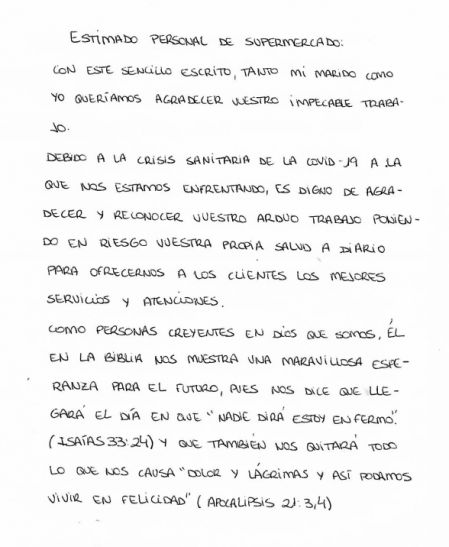 ESTIMADO PERSONAL DE SUPERMERCADO:
CON ESTE SENCILLO ESCRITO, TANTO MI MARIDO COMO
YO QUERÍAMOS AGRADECER VUESTRO IMPECABLE TRABA-
JO.
DEBIDO A LA CRISIS SANITARIA DE LA COVID-19 A LA
QUE NOS ESTAMOS ENFRENTANDO, ES DIGNO DE AGRA-
DECER Y RECONOCER VUESTRO ARDUO TRABAJO PONIEN-
DO EN RIESGO VUESTRA PROPIA SALUD A DIARIO
PARA OFRECERNOS A LOS CLIENTES LOS MEJORES
SERVICIOS Y ATENCIONES.
COMO PERSONAS CREYENTES EN DIOS QUE SOMOS, ÉL
EN LA BIBLIA NOS MUESTRA UNA MARAVILLOSA ESPE-
RANZA PARA EL FUTURO, PUES NOS DICE QUE LLE-
GARÁ EL DÍA EN QUE "NADIE DIRÁ ESTOY ENFERMO".
(ISAÍAS 33:24) Y QUE TAMBIÉN NOS QUITARÁ TODO
LO QUE NOS CAUSA "DOLOR Y LÁGRIMAS Y ASÍ PODAMOS
VIVIR EN FELICIDAD" (APOCALIPSIS 21:3,4)